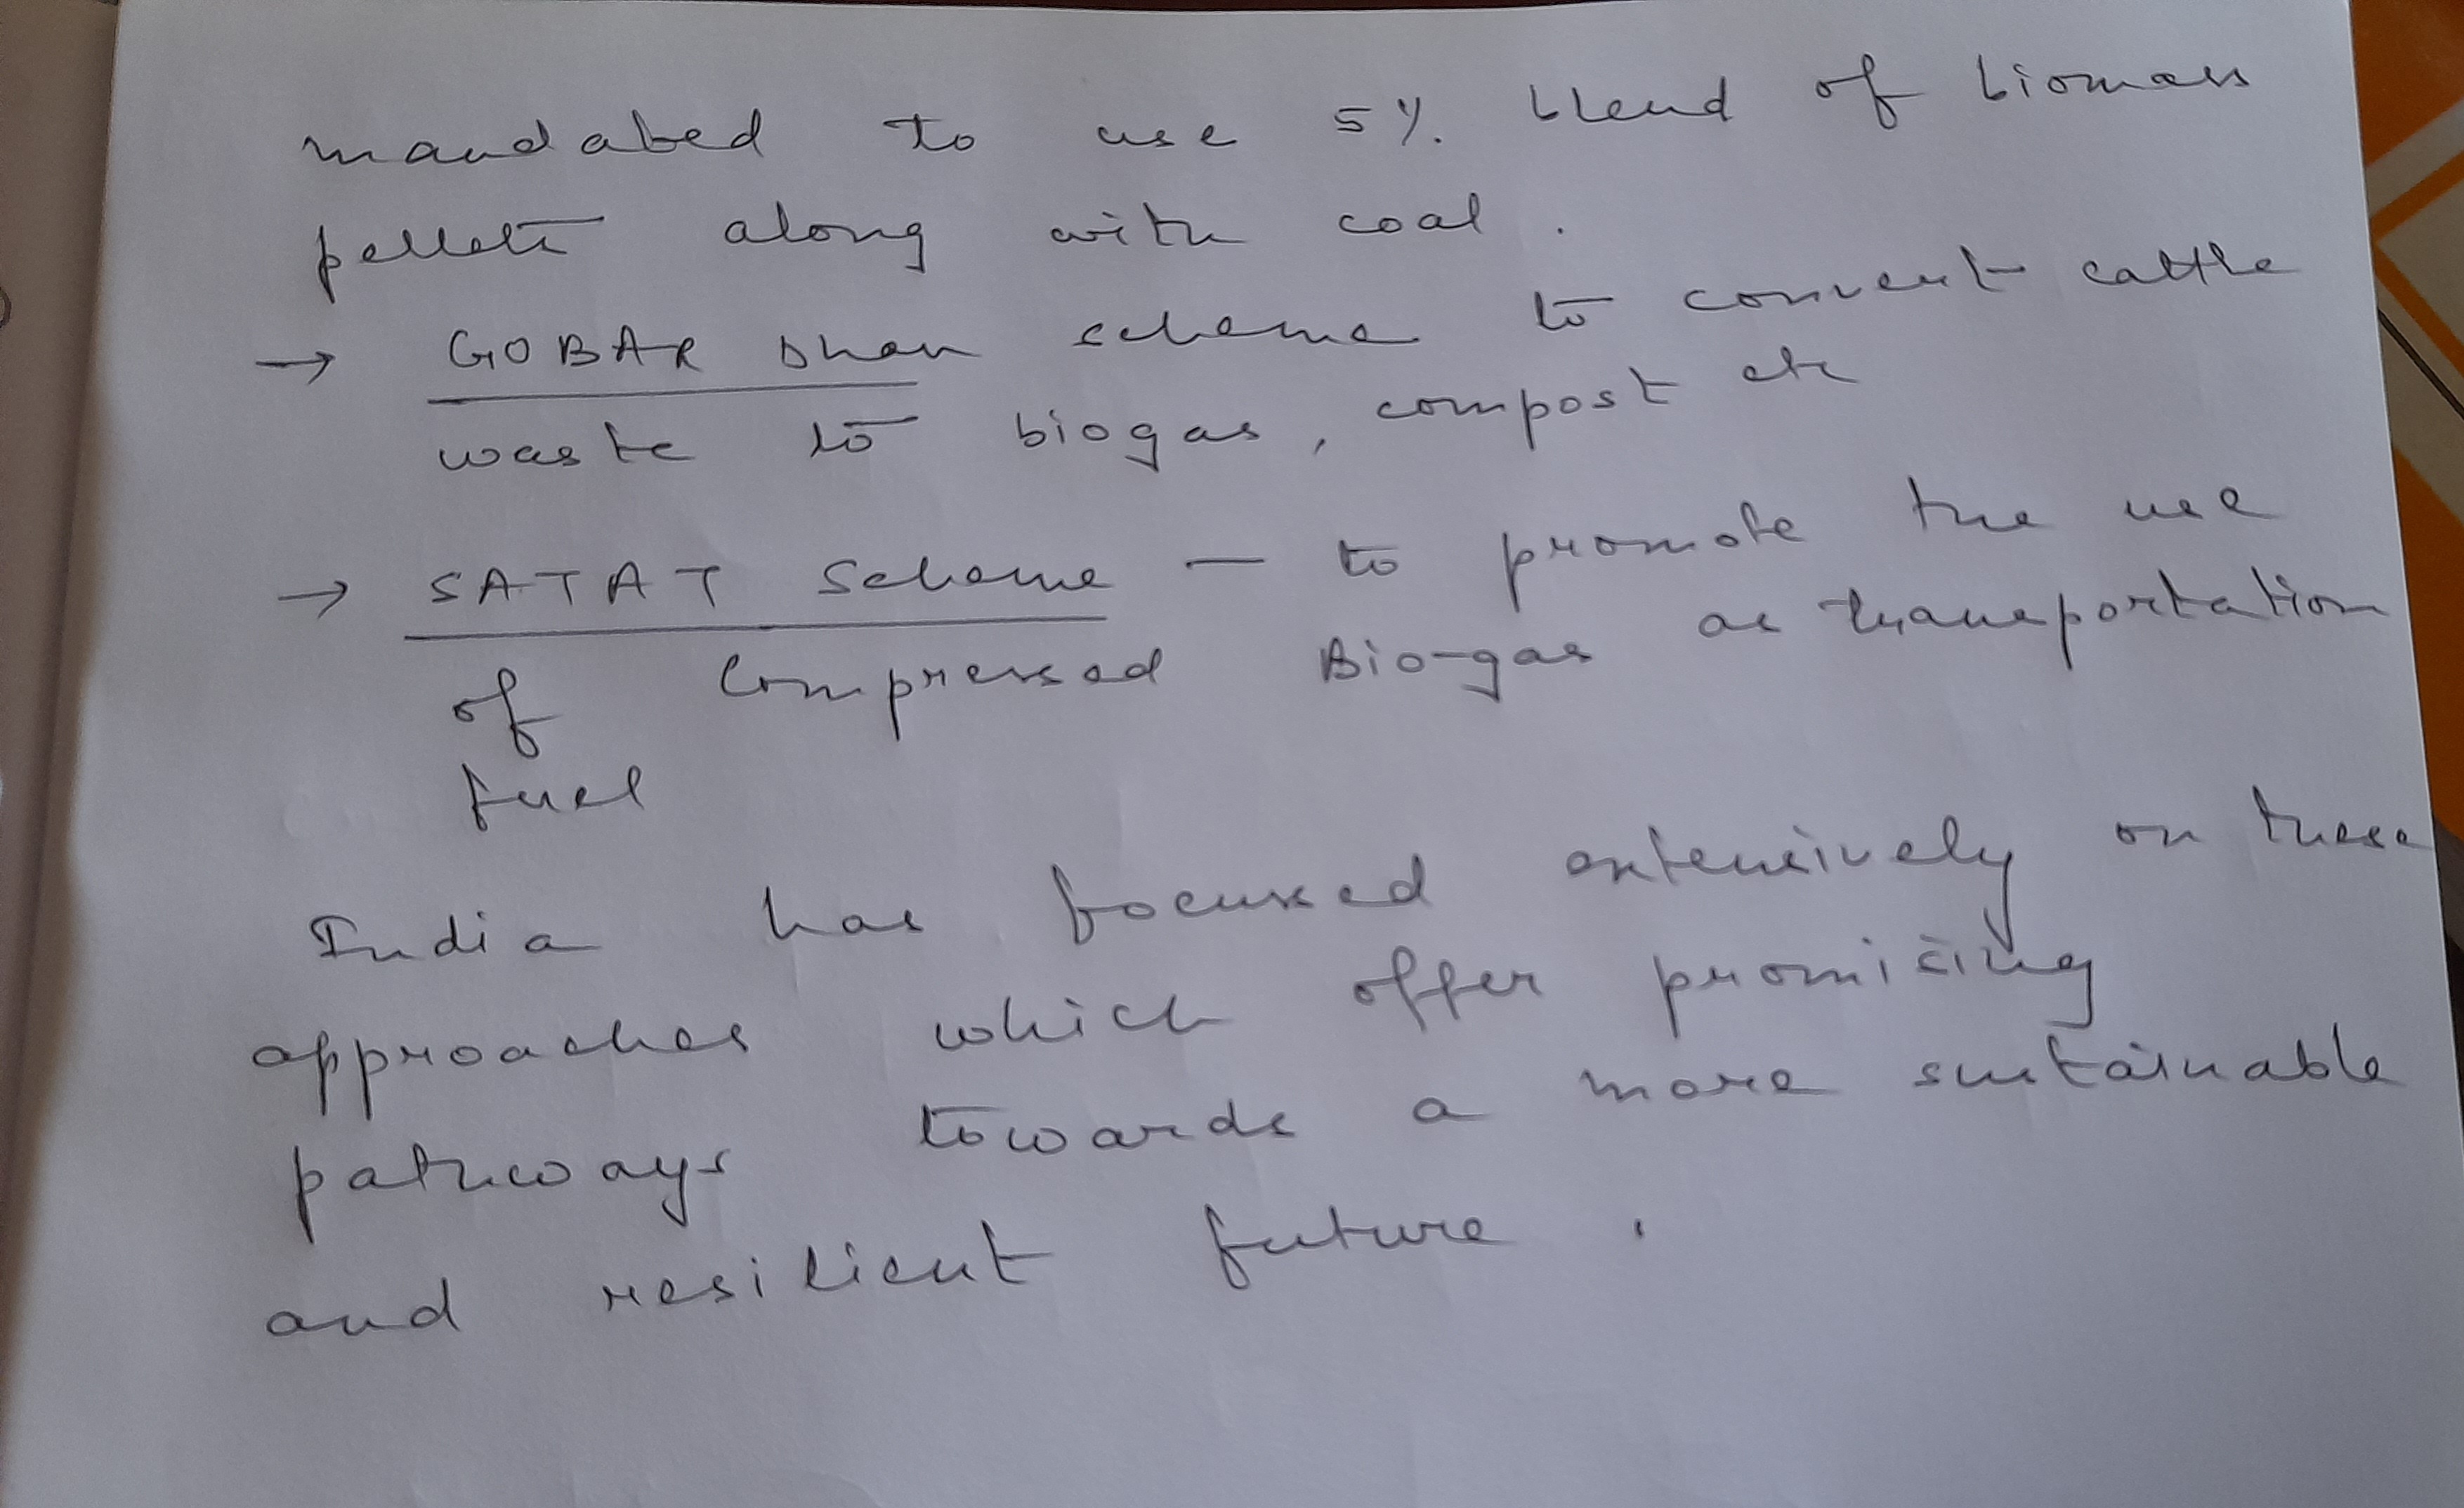 mandated to use 5% blend of biomass
pellets along with coal.
→ GOBAR Dhan scheme to convert cattle
waste to biogas, compost etc
→ SATAT Scheme — to promote the use
of Compressed Bio-gas as transportation
fuel
India has focussed extensively on these
approaches which offer promising
pathways towards a more sustainable
and resilient future.